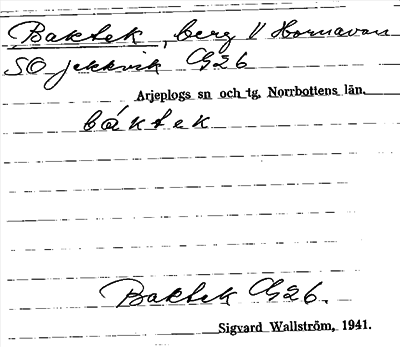 Baktek, berg V Hornavan
SO Jekkvik G26
Arjeplogs sn och tg, Norrbottens län.
báktek
Baktek G26.
Sigvard Wallström, 1941.